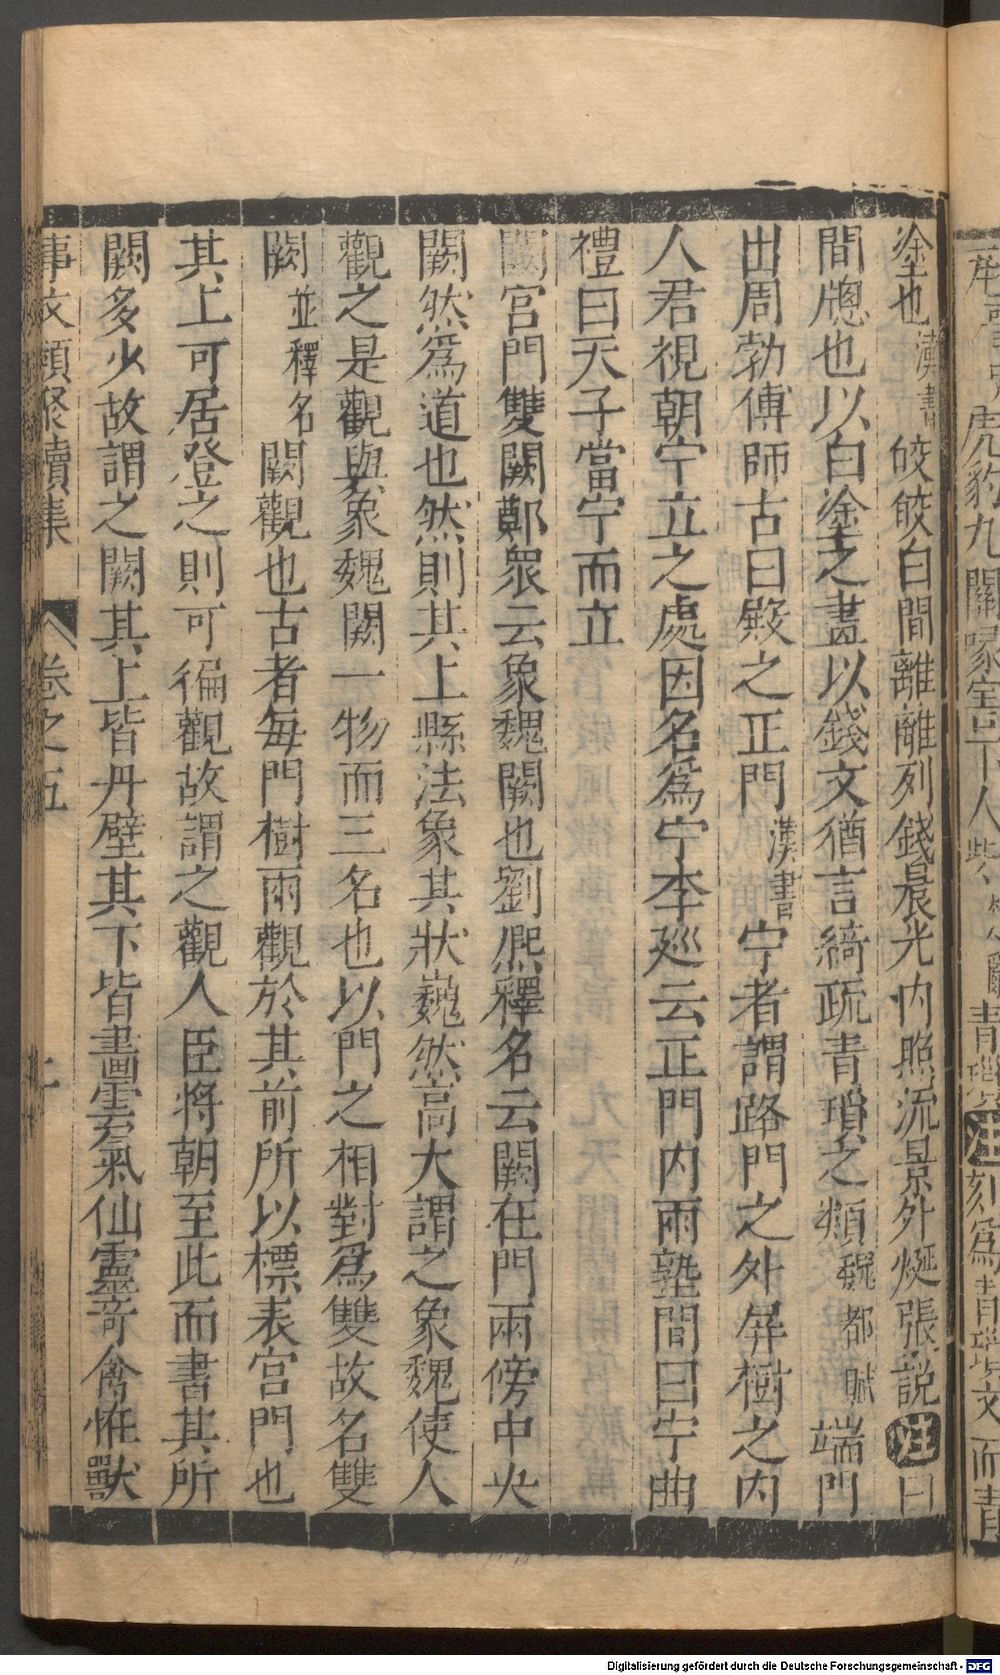 塗也漢書皎皎白間離離列錢晨光内照流景外烻張說注曰
間牕也以白塗之畫以錢文猶言綺疏青瑣之類魏都賦端門
出周勃傅師古曰殿之正門漢書宁者謂路門之外屏樹之内
人君視朝宁立之處因名爲宁李廵云正門内兩塾間曰宁曲
禮曰天子當宁而立
闕宫門雙闕鄭衆云象魏闕也劉熈釋名云闕在門兩傍中央
闕然爲道也然則其上縣法象其狀巍然高大謂之象魏使人
觀之是觀與象魏闕一物而三名也以門之相對爲雙故名雙
闕並釋名闕觀也古者每門樹兩觀於其前所以標表宫門也
其上可居登之則可徧觀故謂之觀人臣將朝至此而書其所
闕多少故謂之闕其上皆丹壁其下皆畫雲氣仙靈奇禽恠獸
事文類聚續集 卷之五
Digitalisierung gefördert durch die Deutsche Forschungsgemeinschaft - DFG